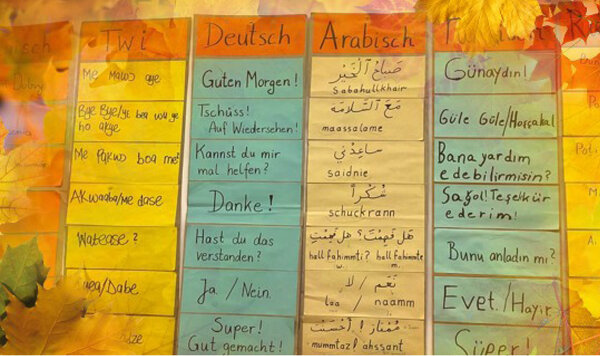 Twi
Me Mawo aye
Bye Bye/ye
Me
boa me
Akwaaba/me dase
Watease?
/Dabe
Deutsch
Guten Morgen!
Tschüss!
Auf Wiedersehen!
Kannst du mir
mal helfen?
Danke!
Hast du das
verstanden?
Ja / Nein
Super!
Gut gemacht!
Arabisch
صَبَاحُ الْخَيْر
Sabahulkhair
مَعَ السَّلَامَة
maassalame
سَاعِدْنِي
saidnie
شُكْراً
schuckrann
هَل فَهِمْتَ؟ هَل فَهِمْتِ
hall fahimmti? hall fahimmt
نَعَم / لا
laa / naamm
مُمْتَاز! أَحْسَنْت
mummtaz! ahssant
Günaydın!
Güle Güle/Hoşçakal
Bana yardım
edebilirmisin?
Sağol! Teşekkür
ederim!
Bunu anladın mı?
Evet./Hayır
Süper!